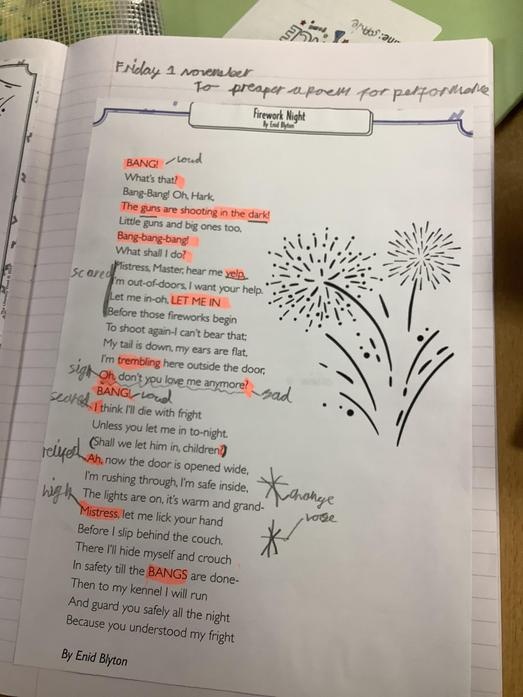 Friday 1 november
To preaper a poem for performance
Firework Night
By Enid Blyton
BANG! loud
What's that?
Bang-Bang! Oh, Hark,
The guns are shooting in the dark!
Little guns and big ones too,
Bang-bang-bang!
What shall I do?
scared Mistress, Master, hear me yelp,
I'm out-of-doors, I want your help.
Let me in-oh, LET ME IN
Before those fireworks begin
To shoot again-I can't bear that;
My tail is down, my ears are flat,
I'm trembling here outside the door,
sigh Oh, don't you love me anymore? sad
BANG! Loud
scared I think I'll die with fright
Unless you let me in to-night.
(Shall we let him in, children?)
Ah, now the door is opened wide,
I'm rushing through, I'm safe inside,
The lights are on, it's warm and grand- change
high Mistress, let me lick your hand
Before I slip behind the couch.
There I'll hide myself and crouch
In safety till the BANGS are done-
Then to my kennel I will run
And guard you safely all the night
Because you understood my fright
By Enid Blyton